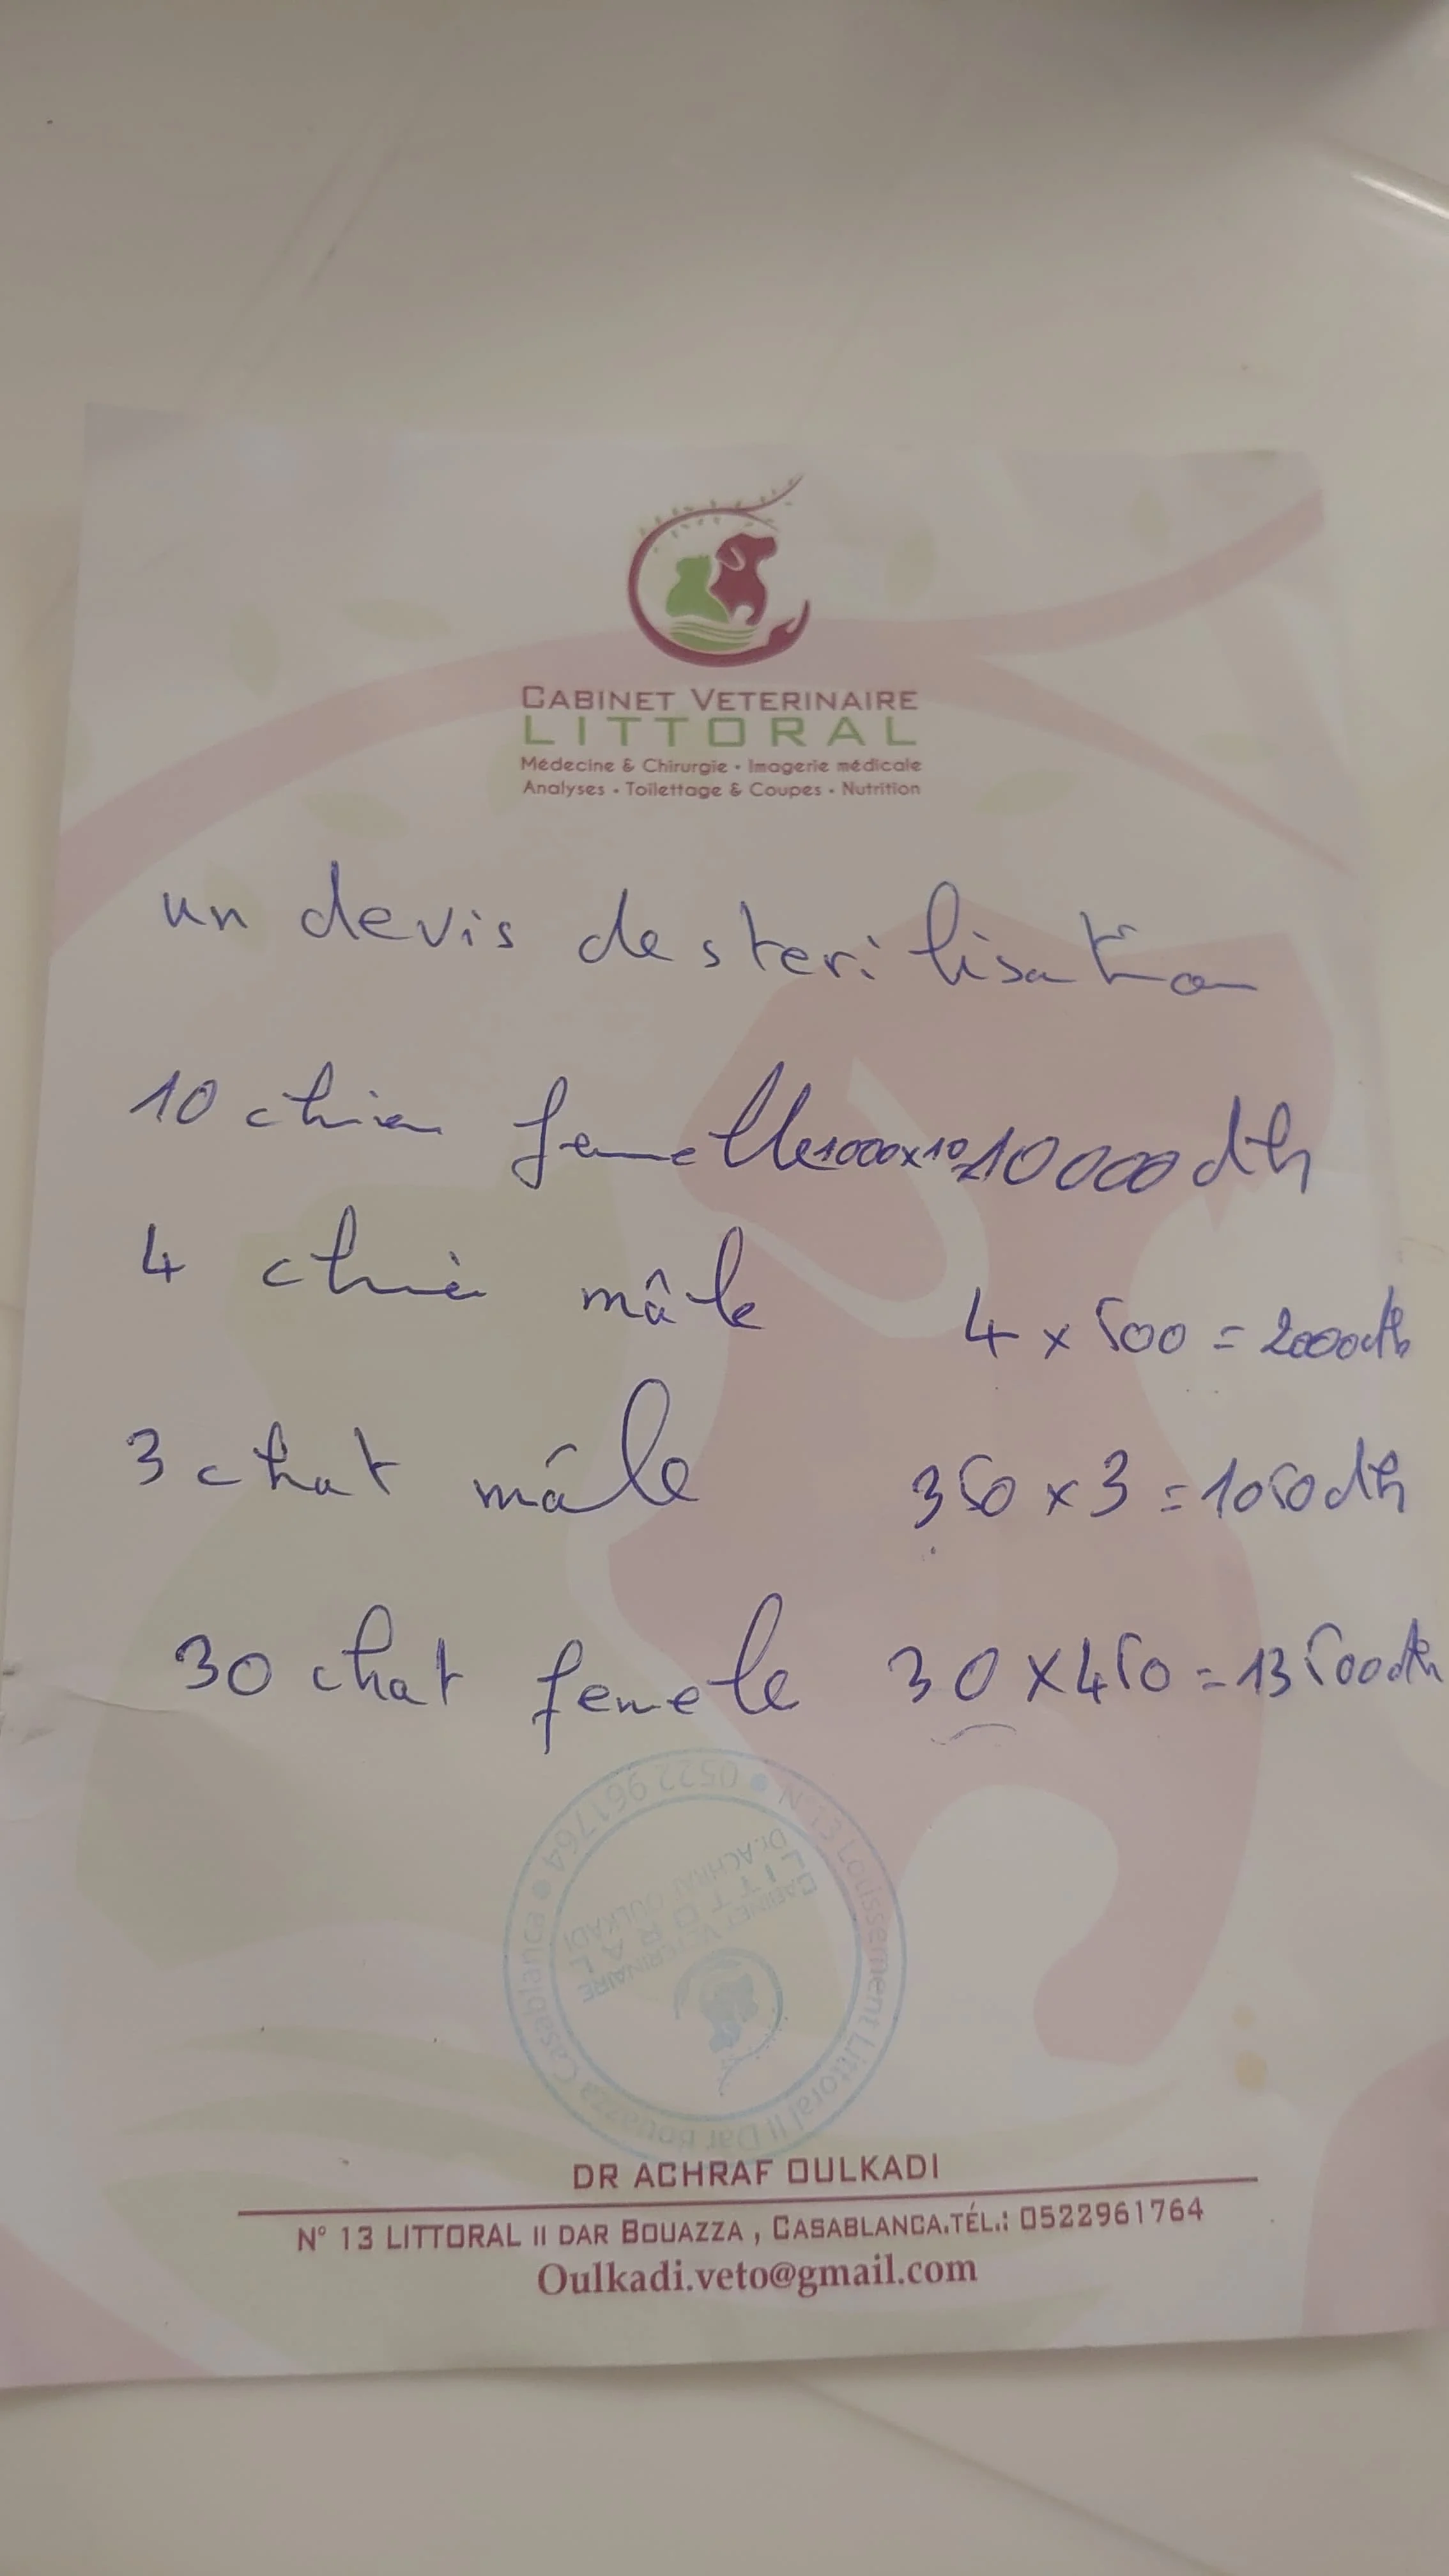 CABINET VETERINAIRE
LITTORAL
Médecine & Chirurgie • Imagerie médicale
Analyses • Toilettage & Coupes • Nutrition
un devis de sterilisation
10 chien femelle 1000x10=10000dh
4 chien mâle 4 x 500 = 2000dh
3 chat mâle 350 x 3 = 1050dh
30 chat femele 30 x 450 = 13500dh
N° 13 Lotissement Littoral II Dar Bouazza Casablanca • 0522 961764 •
CABINET VETERINAIRE
LITTORAL
Dr. ACHRAF OULKADI
DR ACHRAF OULKADI
N° 13 LITTORAL II DAR BOUAZZA , CASABLANCA.TÉL.: 0522961764
Oulkadi.veto@gmail.com